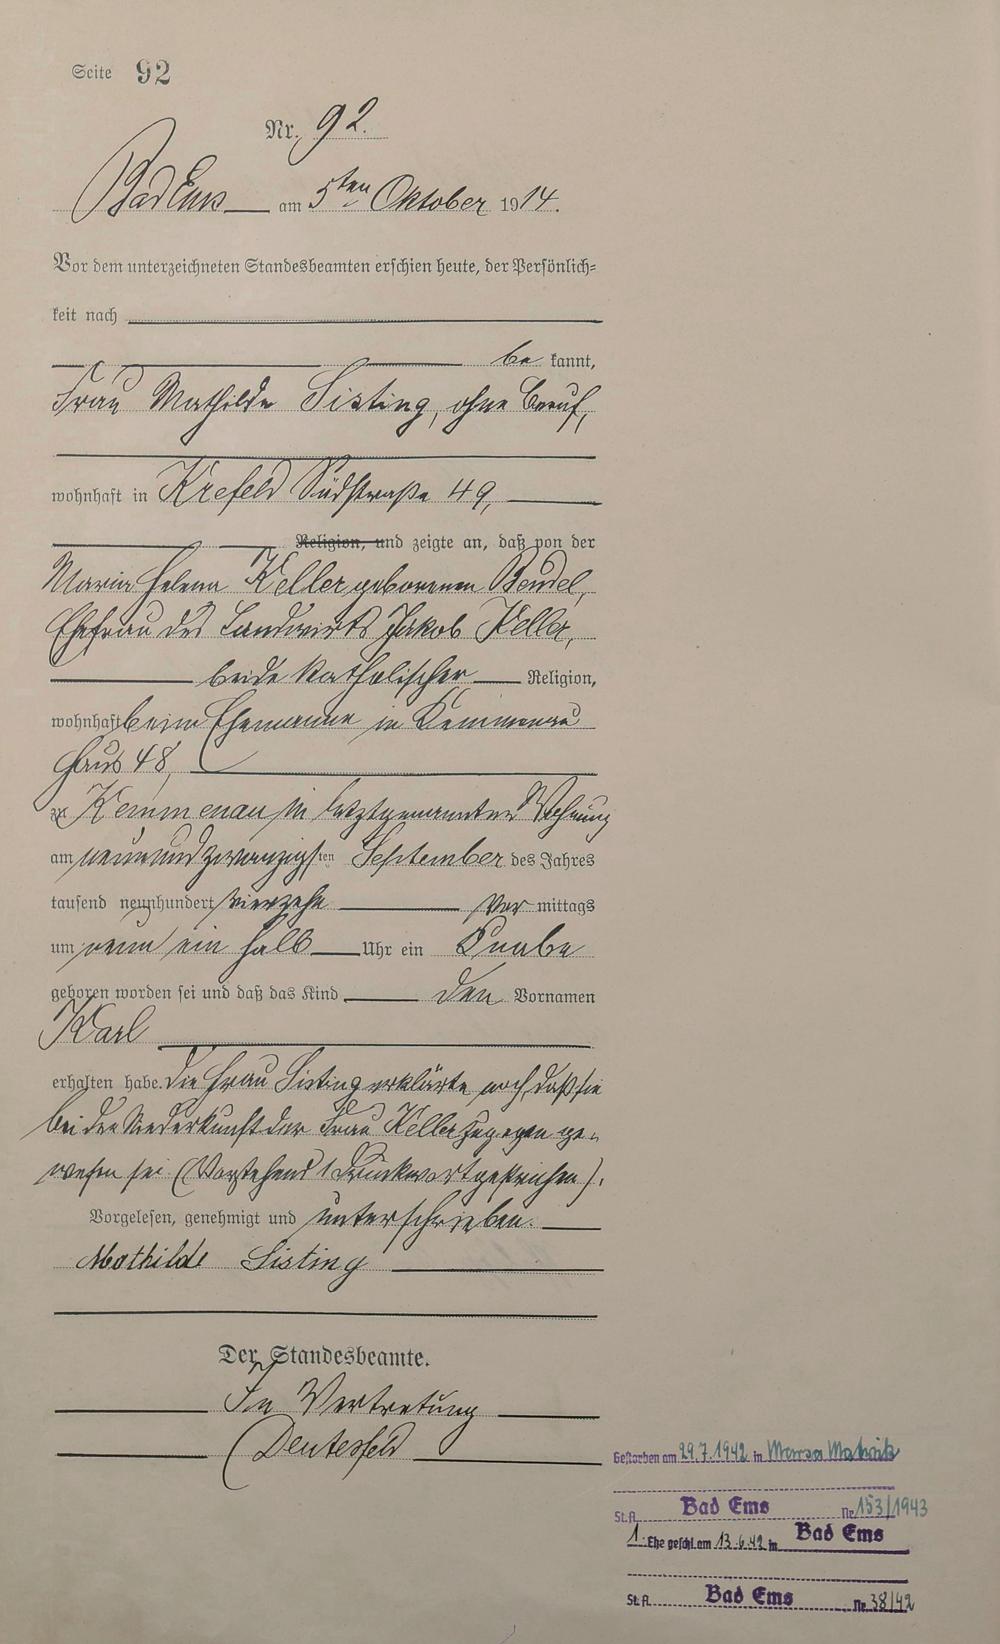 Seite 92
Nr. 92.
Bad Ems am 5ten Oktober 1914.
Vor dem unterzeichneten Standesbeamten erschien heute, der Persönlich-
keit nach
be kannt,
Frau Mathilde Sisting, ohne Beruf,
wohnhaft in Krefeld Südstraße 49,
Religion, und zeigte an, daß von der
Maria Helena Keller geborenen Bendel,
Ehefrau des Landwirts Jakob Keller,
beide katholischer Religion,
wohnhaft beim Ehemanne in Kemmenau
Haus 48,
zu Kemmenau in letztgenannter Wohnung
am neunundzwanzigsten September des Jahres
tausend neunhundert vierzehn Vor mittags
um neun ein halb Uhr ein Knabe
geboren worden sei und daß das Kind den Vornamen
Karl
erhalten habe. Die Frau Sisting erklärte noch, daß sie
bei der Niederkunft der Frau Keller zugegen ge-
wesen sei. (Vorstehend 1 Druckwort gestrichen).
Vorgelesen, genehmigt und unterschrieben.
Mathilde Sisting
Der Standesbeamte.
In Vertretung
Deutesfeld
Gestorben am 29.7.1942 in Marsa Matruk
St.A. Bad Ems Nr. 153/1943
1. Ehe geschl. am 13.6.42 in Bad Ems
St.A. Bad Ems Nr. 38/42